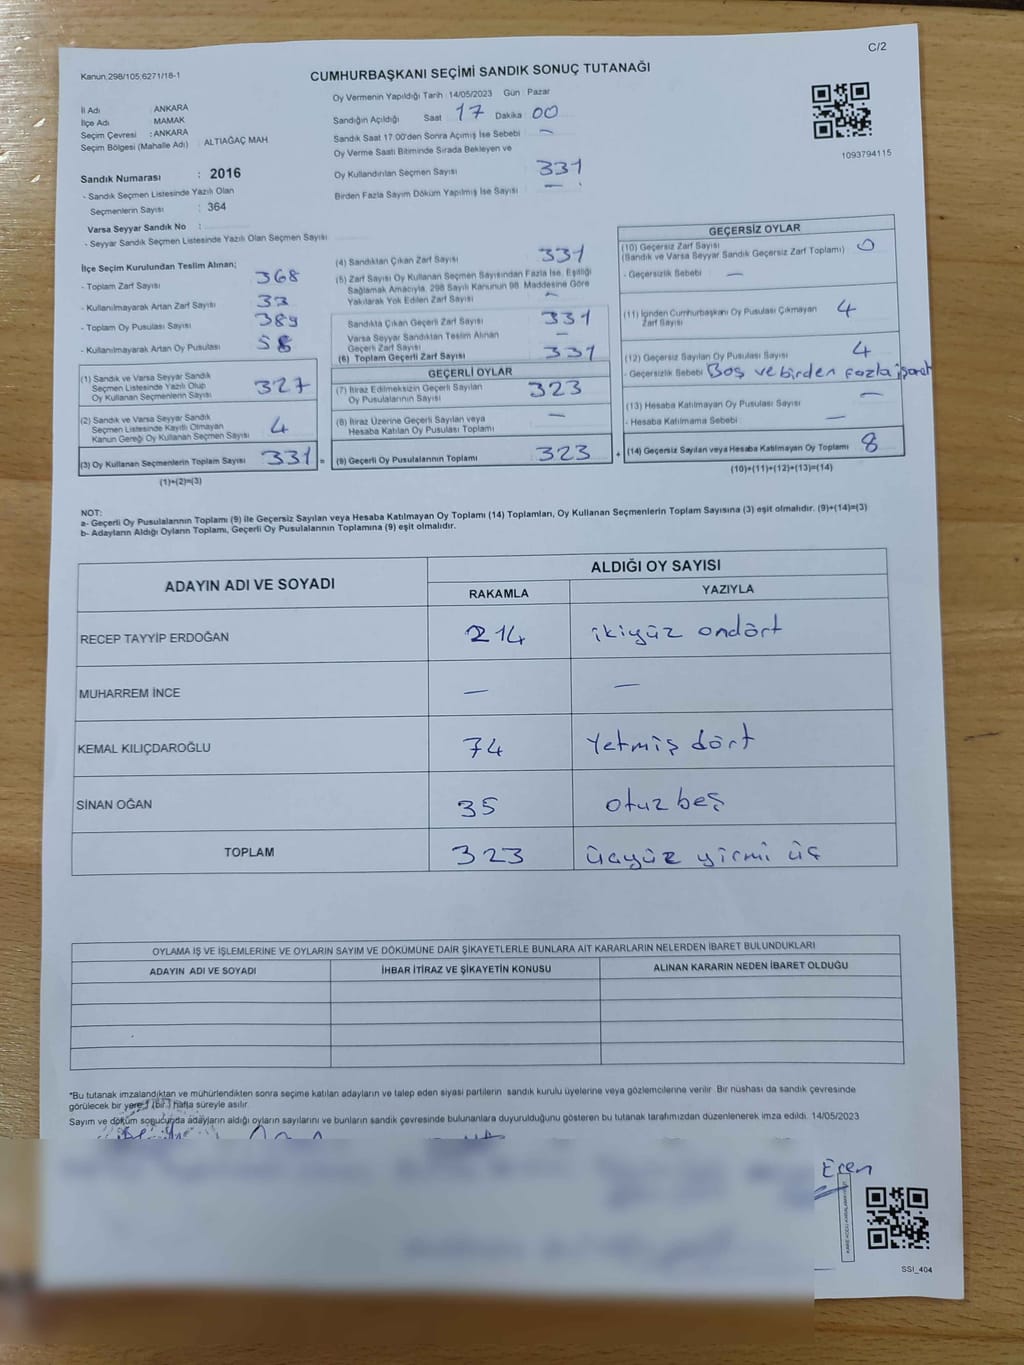 C/2
Kanun:298/105;6271/18-1
CUMHURBAŞKANI SEÇİMİ SANDIK SONUÇ TUTANAĞI
İl Adı : ANKARA
İlçe Adı : MAMAK
Seçim Çevresi : ANKARA
Seçim Bölgesi (Mahalle Adı) : ALTIAĞAÇ MAH
Oy Vermenin Yapıldığı Tarih :14/05/2023 Gün : Pazar
Sandığın Açıldığı Saat 17 Dakika 00
Sandık Saat 17.00'den Sonra Açılmış İse Sebebi —
Oy Verme Saati Bitiminde Sırada Bekleyen ve
Oy Kullandırılan Seçmen Sayısı 331
Birden Fazla Sayım Döküm Yapılmış İse Sayısı —
1093794115
Sandık Numarası : 2016
- Sandık Seçmen Listesinde Yazılı Olan
Seçmenlerin Sayısı : 364
Varsa Seyyar Sandık No :
- Seyyar Sandık Seçmen Listesinde Yazılı Olan Seçmen Sayısı
İlçe Seçim Kurulundan Teslim Alınan;
- Toplam Zarf Sayısı 368
- Kullanılmayarak Artan Zarf Sayısı
- Toplam Oy Pusulası Sayısı 389
- Kullanılmayarak Artan Oy Pusulası 58
(1) Sandık ve Varsa Seyyar Sandık
Seçmen Listesinde Yazılı Olup
Oy Kullanan Seçmenlerin Sayısı 327
(2) Sandık ve Varsa Seyyar Sandık
Seçmen Listesinde Kayıtlı Olmayan
Kanun Gereği Oy Kullanan Seçmen Sayısı 4
(3) Oy Kullanan Seçmenlerin Toplam Sayısı 331 =
(1)+(2)=(3)
(4) Sandıktan Çıkan Zarf Sayısı 331
(5) Zarf Sayısı Oy Kullanan Seçmen Sayısından Fazla İse, Eşitliği
Sağlamak Amacıyla, 298 Sayılı Kanunun 98. Maddesine Göre
Yakılarak Yok Edilen Zarf Sayısı —
Sandıkta Çıkan Geçerli Zarf Sayısı 331
Varsa Seyyar Sandıktan Teslim Alınan
Geçerli Zarf Sayısı —
(6) Toplam Geçerli Zarf Sayısı 331
GEÇERLİ OYLAR
(7) İtiraz Edilmeksizin Geçerli Sayılan
Oy Pusulalarının Sayısı 323
(8) İtiraz Üzerine Geçerli Sayılan veya
Hesaba Katılan Oy Pusulası Toplamı —
(9) Geçerli Oy Pusulalarının Toplamı 323 +
GEÇERSİZ OYLAR
(10) Geçersiz Zarf Sayısı
(Sandık ve Varsa Seyyar Sandık Geçersiz Zarf Toplamı) 0
- Geçersizlik Sebebi —
(11) İçinden Cumhurbaşkanı Oy Pusulası Çıkmayan
Zarf Sayısı 4
(12) Geçersiz Sayılan Oy Pusulası Sayısı 4
- Geçersizlik Sebebi Boş ve birden fazla işaret
(13) Hesaba Katılmayan Oy Pusulası Sayısı —
- Hesaba Katılmama Sebebi —
(14) Geçersiz Sayılan veya Hesaba Katılmayan Oy Toplamı 8
(10)+(11)+(12)+(13)=(14)
NOT:
a- Geçerli Oy Pusulalarının Toplamı (9) ile Geçersiz Sayılan veya Hesaba Katılmayan Oy Toplamı (14) Toplamları, Oy Kullanan Seçmenlerin Toplam Sayısına (3) eşit olmalıdır. (9)+(14)=(3)
b- Adayların Aldığı Oyların Toplamı, Geçerli Oy Pusulalarının Toplamına (9) eşit olmalıdır.
ADAYIN ADI VE SOYADI
ALDIĞI OY SAYISI
RAKAMLA YAZIYLA
RECEP TAYYİP ERDOĞAN 214 ikiyüz ondört
MUHARREM İNCE — —
KEMAL KILIÇDAROĞLU 74 Yetmiş dört
SİNAN OĞAN 35 otuz beş
TOPLAM 323 üçyüz yirmi üç
OYLAMA İŞ VE İŞLEMLERİNE VE OYLARIN SAYIM VE DÖKÜMÜNE DAİR ŞİKAYETLERLE BUNLARA AİT KARARLARIN NELERDEN İBARET BULUNDUKLARI
ADAYIN ADI VE SOYADI İHBAR İTİRAZ VE ŞİKAYETİN KONUSU ALINAN KARARIN NEDEN İBARET OLDUĞU
*Bu tutanak imzalandıktan ve mühürlendikten sonra seçime katılan adayların ve talep eden siyasi partilerin sandık kurulu üyelerine veya gözlemcilerine verilir. Bir nüshası da sandık çevresinde
görülecek bir yere 1 (bir) hafta süreyle asılır.
Sayım ve döküm sonucunda adayların aldığı oyların sayılarını ve bunların sandık çevresinde bulunanlara duyurulduğunu gösteren bu tutanak tarafımızdan düzenlenerek imza edildi. 14/05/2023
Eren
SSI_404